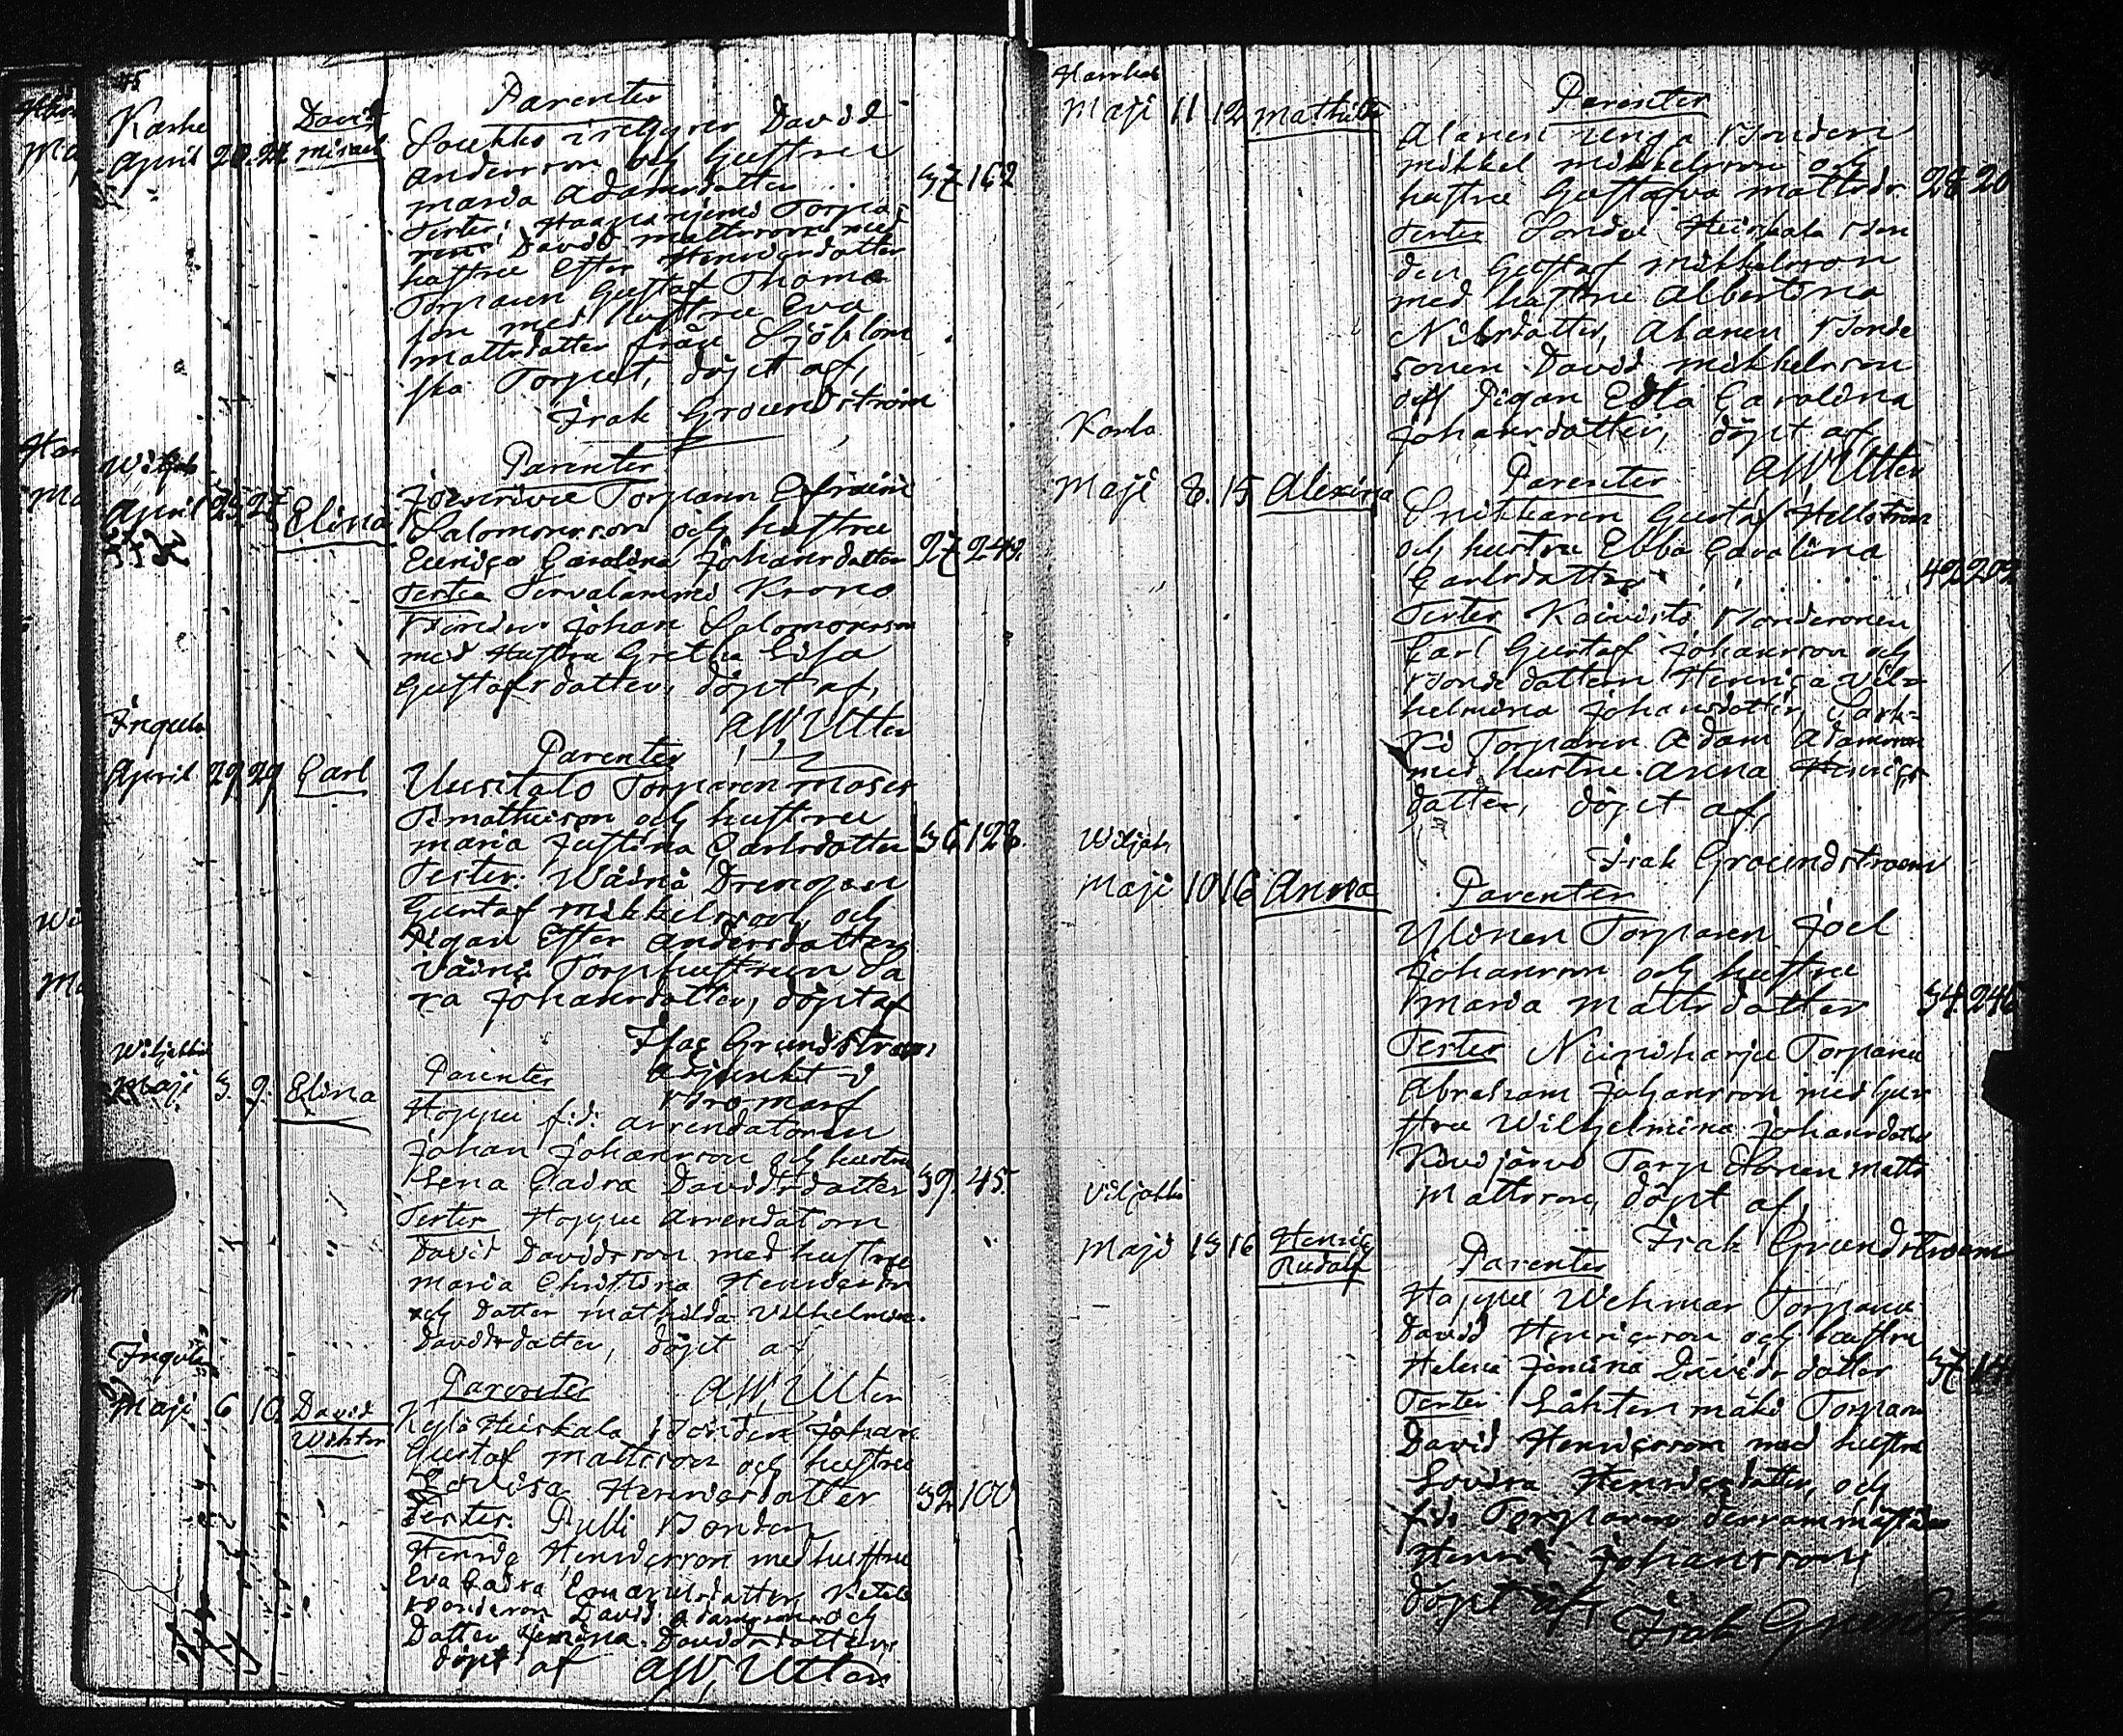 45
Karhe
April 20. 24 David Mikael
Parenter
David
Andersson och hustru
Maria Adamsdotter
37 162
Tester: Haapaniemi Torpa=
ren David Mattsson med
hustru Ester Henricsdotter
Torparen Gustaf Thoma
son med hustru Eva
Mattsdotter från Sjöblom
ska Torpet, döpt af,
Isak Groundström
April 25 27 Elina
Parenter
Torparn Efraim
Salomonsson och hustru
Eunica Carolina Johansdotter
27 242
Tester Tervalammi Krono
Bonden Johan Salomonsson
med Hustru Gretha Lisa
Gustafsdotter, döpt af,
A W, Utter
Inguls
April 29 29 Carl
Parenter
Uusitalo Torparen Moses
Timotheuson och hustru
Maria Justina Carlsdotter
36 128
Tester: Wäinä Drengen
Gustaf Mikkelsson och
Pigan Ester Andersdotter
Väinä Torphustrun Sa
ra Johansdotter, döpt af
Isac Grundstroem
Adjunkt i
Viljakkala
Maji 3. 9. Elina
Parenter
Hoppu f:d: arrendatoren
Johan Johansson och hustru
Lena Caisa Davidsdotter
39. 45.
Tester Hoppu Arrendatorn
David Davidsson med hustru
Maria Christina Henricsdr
och Dotter Mathilda Vilhelmin.
Davidsdotter, döpt af
A W, Utter
Inguls
Maji 6 10. David Wikter
Parenter
Kylä Heiskala Bonden Johan
Gustaf Mattsson och hustru
Lovisa Henricsdotter
32 100
Tester: Pulli Bonden
Henric Henricsson med hustru
Eva Caisa Emanuelsdotter
Bondeson David Adamsson och
Dotter Jemina Davidsdotter,
döpt af A W, Utter
Maji 11 12 Mathilda
Parenter
Alanen unga Bonden
Mikkel Mikkelsson och
hustru Gustafva Mattsdr.
28 20
Tester Heiskala Bon
den Gustaf Mikkelsson
med hustru Albertina
Nilsdotter, Alanen Bonde
sonen David Mikkelsson
och Pigan Edla Carolina
Johansdotter, döpt af,
A W, Utter
Karhe
Maji 8. 15 Alexina
Parenter
Snikkaren Gustaf Hellström
och hustru Ebba Carolina
Carlsdotter
42 202
Tester Koivisto Bondesonen
Carl Gustaf Johansson och
Bondedottern Henrica Vil=
helmina Johansdotter,
Torparen Adam Adamsson
med hustru Anna Henrics
dotter, döpt af,
Isak Groundstroem
Wiljak
Maji 10 16 Anna
Parenter
Ylinen Torparen Joel
Johansson och hustru
Maria Mattsdotter
34. 246
Tester Niiniharju Torparen
Abraham Johansson med hus
tru Wilhelmina Johansdotter
Kivijärvi Torp Sonen Matts
Mattsson, döpt af,
Isak Grundstroem
Viljakk
Maji 13 16 Henric Rudolf
Parenter
Hoppu Wehmar Torparen
David Henricsson och hustru
Helena Jemina Davids dotter
Tester Lähtenmäki Torparn
David Henricsson med hustru
Lovisa Henricsdotter, och
f:d: Torparen dersammastädes
Henric Johansson,
döpt af, Isak